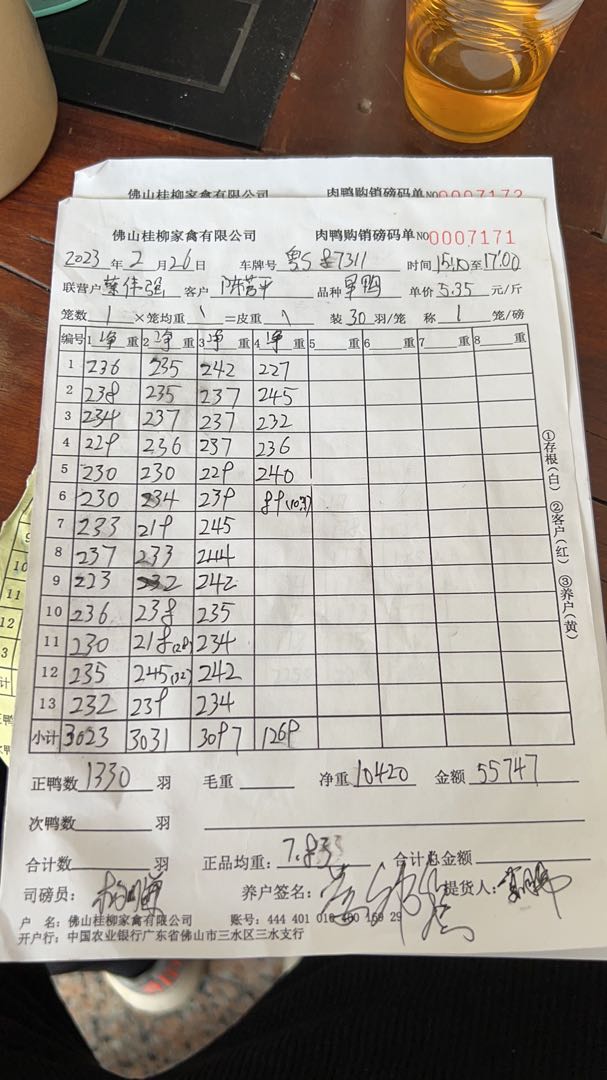 佛山桂柳家禽有限公司 肉鸭购销磅码单 NO 0007172
佛山桂柳家禽有限公司 肉鸭购销磅码单 NO 0007171
2023 年 2 月 26 日 车牌号 粤S 87311 时间 15:10 至 17:00
联营户 客户 品种 单价 5.35 元/斤
笼数 1 ×笼均重 \ =皮重 \ 装 30 羽/笼 称 1 笼/磅
编号 1 净 重 2 净 重 3 净 重 4 净 重 5 重 6 重 7 重 8 重
1 236 235 242 227
2 238 235 237 245
3 234 237 237 232
4 229 236 237 236
5 230 230 229 240
6 230 234 239 89(10只)
7 233 219 245
8 237 233 244
9 223 232 242
10 236 238 235
11 230 218(28) 234
12 235 245(32) 242
13 232 239 234
小计 3023 3031 3097 1269
正鸭数 1330 羽 毛重 净重 10420 金额 55747
次鸭数 羽
合计数 羽 正品均重: 7.83 合计总金额
司磅员: 养户签名: 提货人:
户 名: 佛山桂柳家禽有限公司 账号: 444 401 010 400 169 29
开户行: 中国农业银行广东省佛山市三水区三水支行
①存根(白) ②客户(红) ③养户(黄)